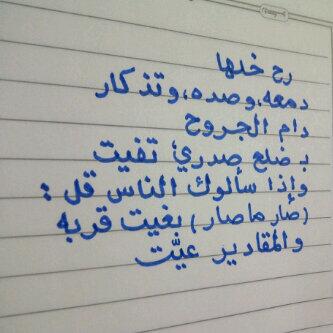 رح خذها
دمعه، وصده، وتذكار
دام الجروح
بـ ضلع صدريّ تفيت
وإذا سألوك الناس قل :
(صار ما صار) بغيت قربه
والمقادير عيّت